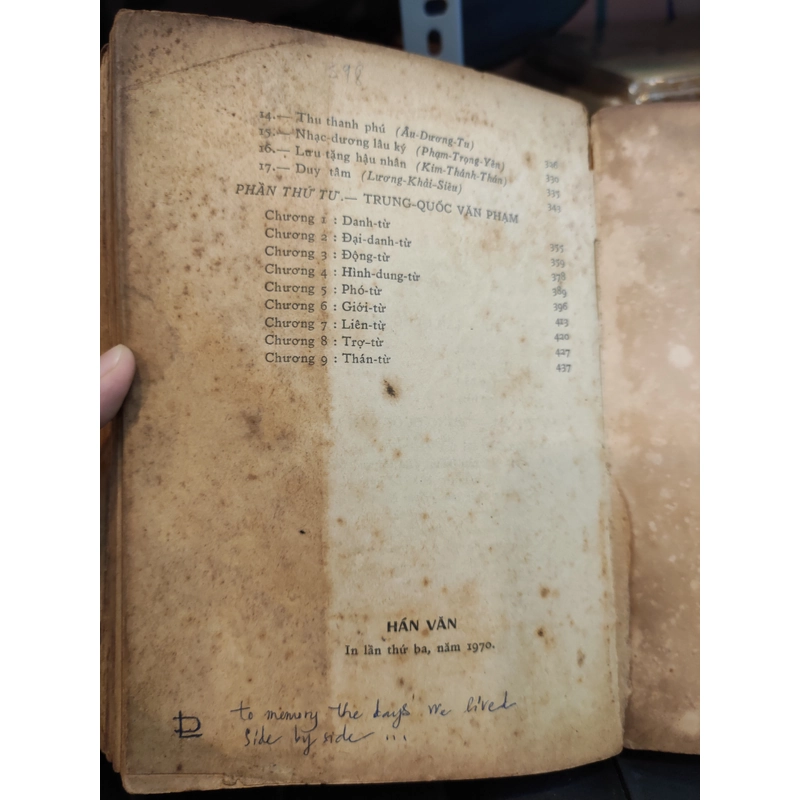 398
14.— Thu thanh phú (Âu-Dương-Tu) 326
15.— Nhạc-dương lâu ký (Phạm-Trọng-Yêm) 330
16.— Lưu tặng hậu nhân (Kim-Thánh-Thán) 335
17.— Duy tâm (Lương-Khải-Siêu) 345
PHẦN THỨ TƯ.— TRUNG-QUỐC VĂN PHẠM
Chương 1 : Danh-từ 355
Chương 2 : Đại-danh-từ 359
Chương 3 : Động-từ 378
Chương 4 : Hình-dung-từ 389
Chương 5 : Phó-từ 396
Chương 6 : Giới-từ 423
Chương 7 : Liên-từ 420
Chương 8 : Trợ-từ 427
Chương 9 : Thán-từ 437
HÁN VĂN
In lần thứ ba, năm 1970.
to memory the days we lived
side by side ...